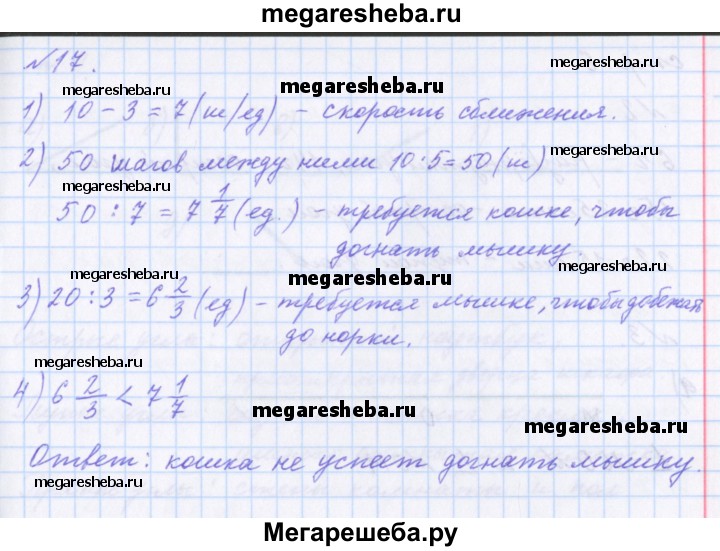 megaresheba.ru
№17.
megaresheba.ru megaresheba.ru
1) 10 - 3 = 7 (ш/ед) - скорость сближения.
megaresheba.ru
2) 50 шагов между ними 10·5=50 (ш)
50 : 7 = 7 1/7 (ед.) - требуется кошке, чтобы
догнать мышку.
megaresheba.ru megaresheba.ru
3) 20 : 3 = 6 2/3 (ед) - требуется мышке, чтобы добежать
до норки.
megaresheba.ru
4) 6 2/3 < 7 1/7
megaresheba.ru
Ответ: кошка не успеет догнать мышку.
megaresheba.ru megaresheba.ru
Мегарешеба.ру